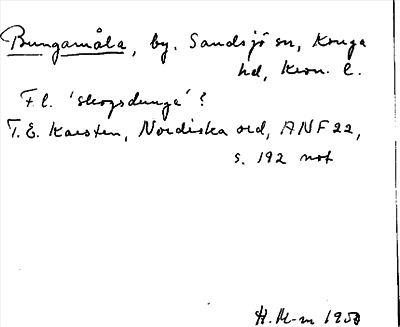 Bungamåla, by. Sandsjö sn, Konga
hd, Kron. l.
F.l. 'skogsdunge'?
T.E. Karsten, Nordiska ord, ANF 22,
s. 192 not
H. M-m 1950